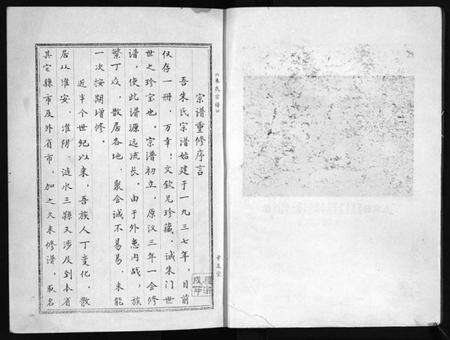 宗谱重修序言
吾朱氏宗谱始建于一九三七年，目前
仅存一册，万幸：文钦兄珍藏，诚朱门世
世之珍宝也，宗谱初立，原汉三年一会修
谱，使此谱源远流长，由于外患内战，族
繁丁众，散居各地，聚合诚不易易，未能
一次按期增修。
近半个世纪以来，吾族人丁变化，散
居以淮安、淮阴、涟水三县又涉及到本省
其它县市及外省市，加之久未修谱，取名
《朱氏宗谱》